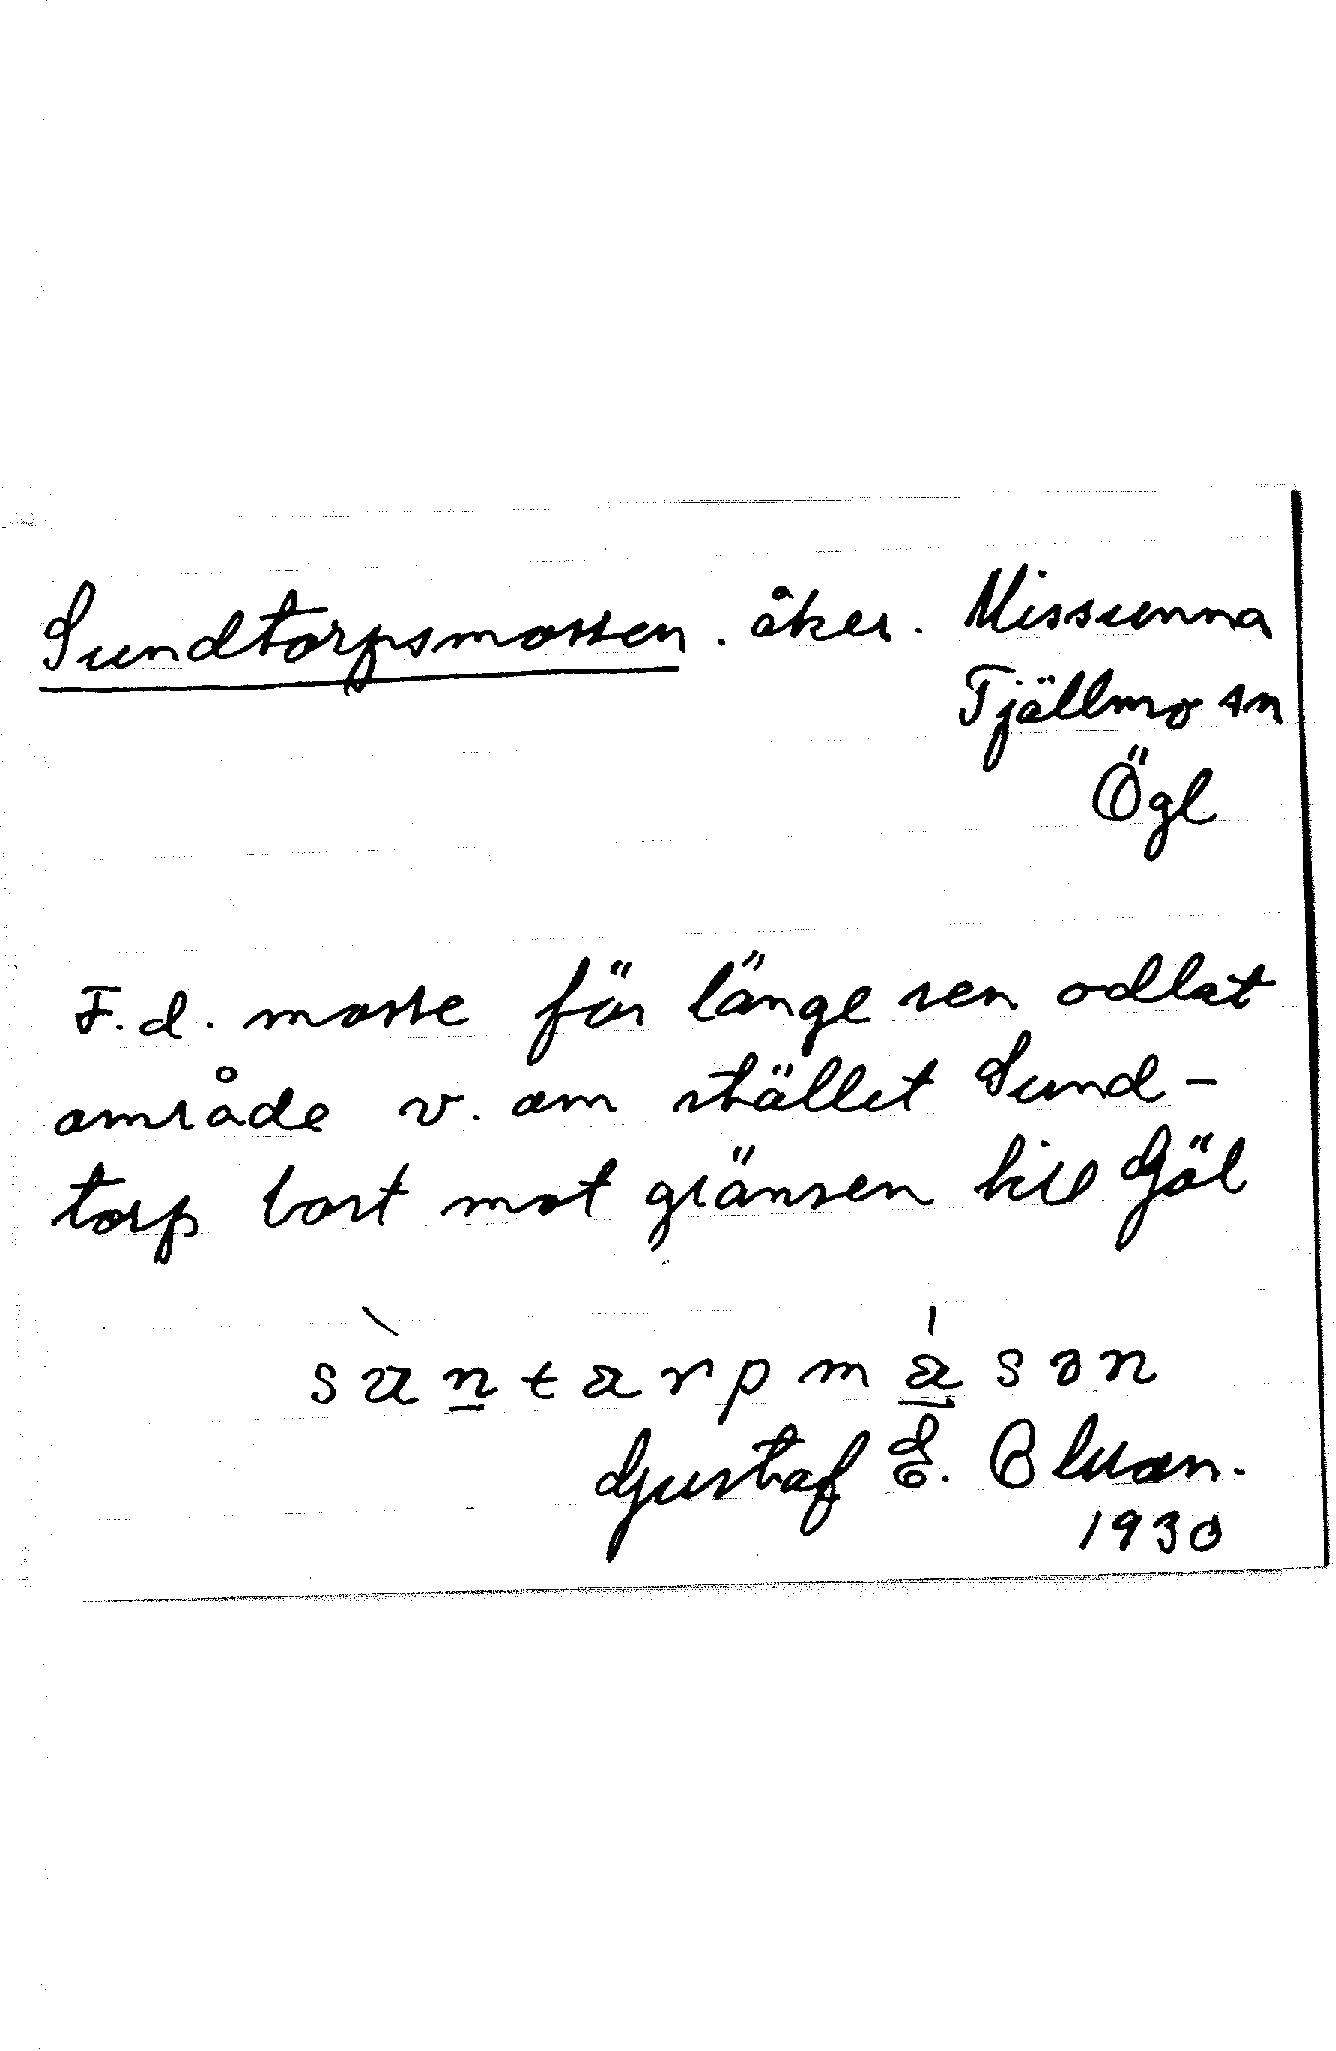 Sundtorpsmossen. åker. Missunna
Tjällmo sn
Ögl
F.d. mosse för länge sen odlat
område v. om stället Sund-
torp bort mot gränsen till Göl
sùntarpmásən
Gustaf E.
1930